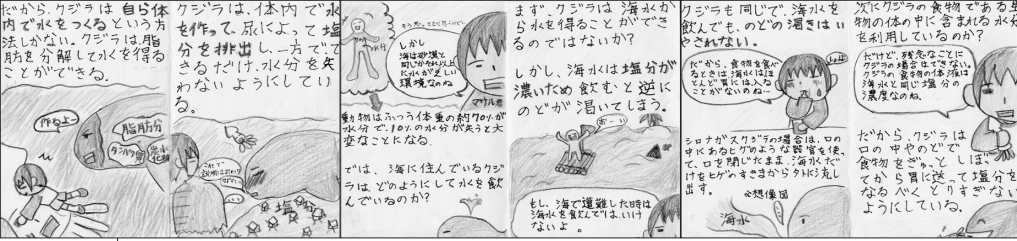 だから、クジラは 自ら体
内で水をつくるという方
法しかない。クジラは脂
肪を分解して水を得る
ことができる。
作るよー
脂肪分
タンパク質
炭水化物
クジラは、体内で水
を作って、尿によって塩
分を排出し、一方でで
きるだけ、水分を失
わないようにしてい
る。
これで
説明はおわり
塩分
水分
しかし
海は砂漠と
同じかそれ以上
に水が乏しい
環境なのね
マナル君
動物はふつう体重の約70%が
水分で、10%の水分が失うと大
変なことになる。
では、海に住んでいるクジ
ラは、どのようにして水を飲
んでいるのか?
まず、クジラは 海水か
ら水を得ることができ
るのではないか?
しかし、海水は塩分が
濃いため飲むと逆に
のどが渇いてしまう。
おーい
もし、海で遭難した時は
海水を飲んでは、いけ
ないよ。
クジラも同じで、海水を
飲んでも、のどの渇きはい
やされない。
だから、食物を食べ
るときは、海水はほ
とんど胃には入る
ことがないのね…
しょぼ
シロナガスクジラの場合は、口の
中にあるヒゲのような器官を使っ
て、口を閉じたまま、海水だ
けをヒゲのすきまから外に流し
出す。
※想像図
海水
次にクジラの食物である生
物の体の中に含まれる水分
を利用しているのか?
だけど、残念なことに
クジラの場合はできない。
クジラの食物の体液は
海水と同じ塩分の
濃度なのね。
だから、クジラは
口の中やのどで
食物をぎゅっとしぼっ
てから胃に送って塩分を
なるべくとりすぎない
ようにしている。